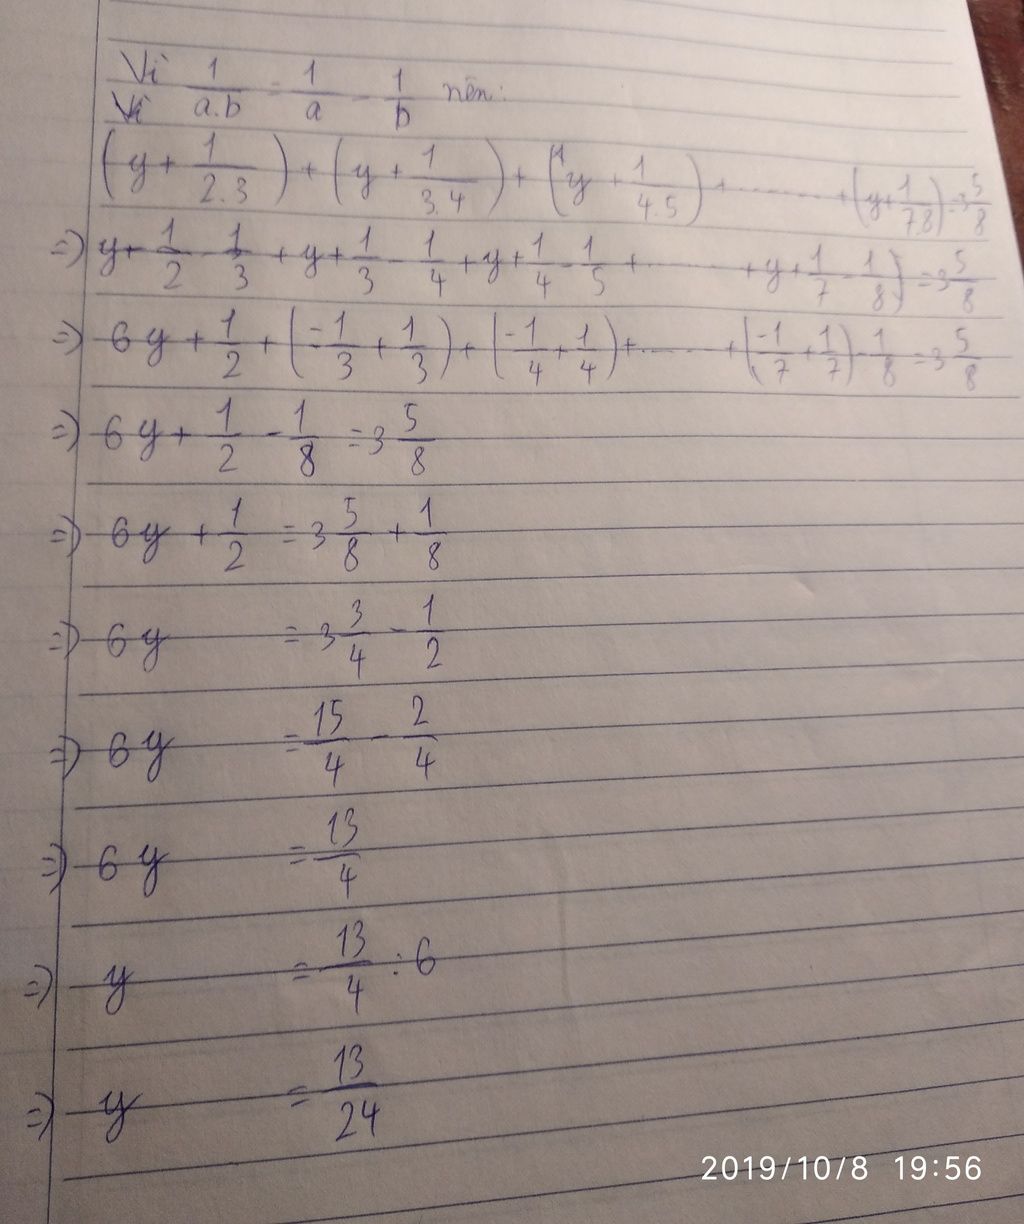 Vì 1/a.b = 1/a - 1/b nên:
Vì
(y + 1/2.3) + (y + 1/3.4) + (y + 1/4.5) + ........ + (y + 1/7.8) = 3 5/8
=) y + 1/2 - 1/3 + y + 1/3 - 1/4 + y + 1/4 - 1/5 + ........ + y + 1/7 - 1/8) = 3 5/8
=) 6y + 1/2 + (-1/3 + 1/3) + (-1/4 + 1/4) + ........ + (-1/7 + 1/7) - 1/8 = 3 5/8
=) 6y + 1/2 - 1/8 = 3 5/8
=) 6y + 1/2 = 3 5/8 + 1/8
=) 6y = 3 3/4 - 1/2
=) 6y = 15/4 - 2/4
=) 6y = 13/4
=) y = 13/4 : 6
=) y = 13/24
2019/10/8 19:56